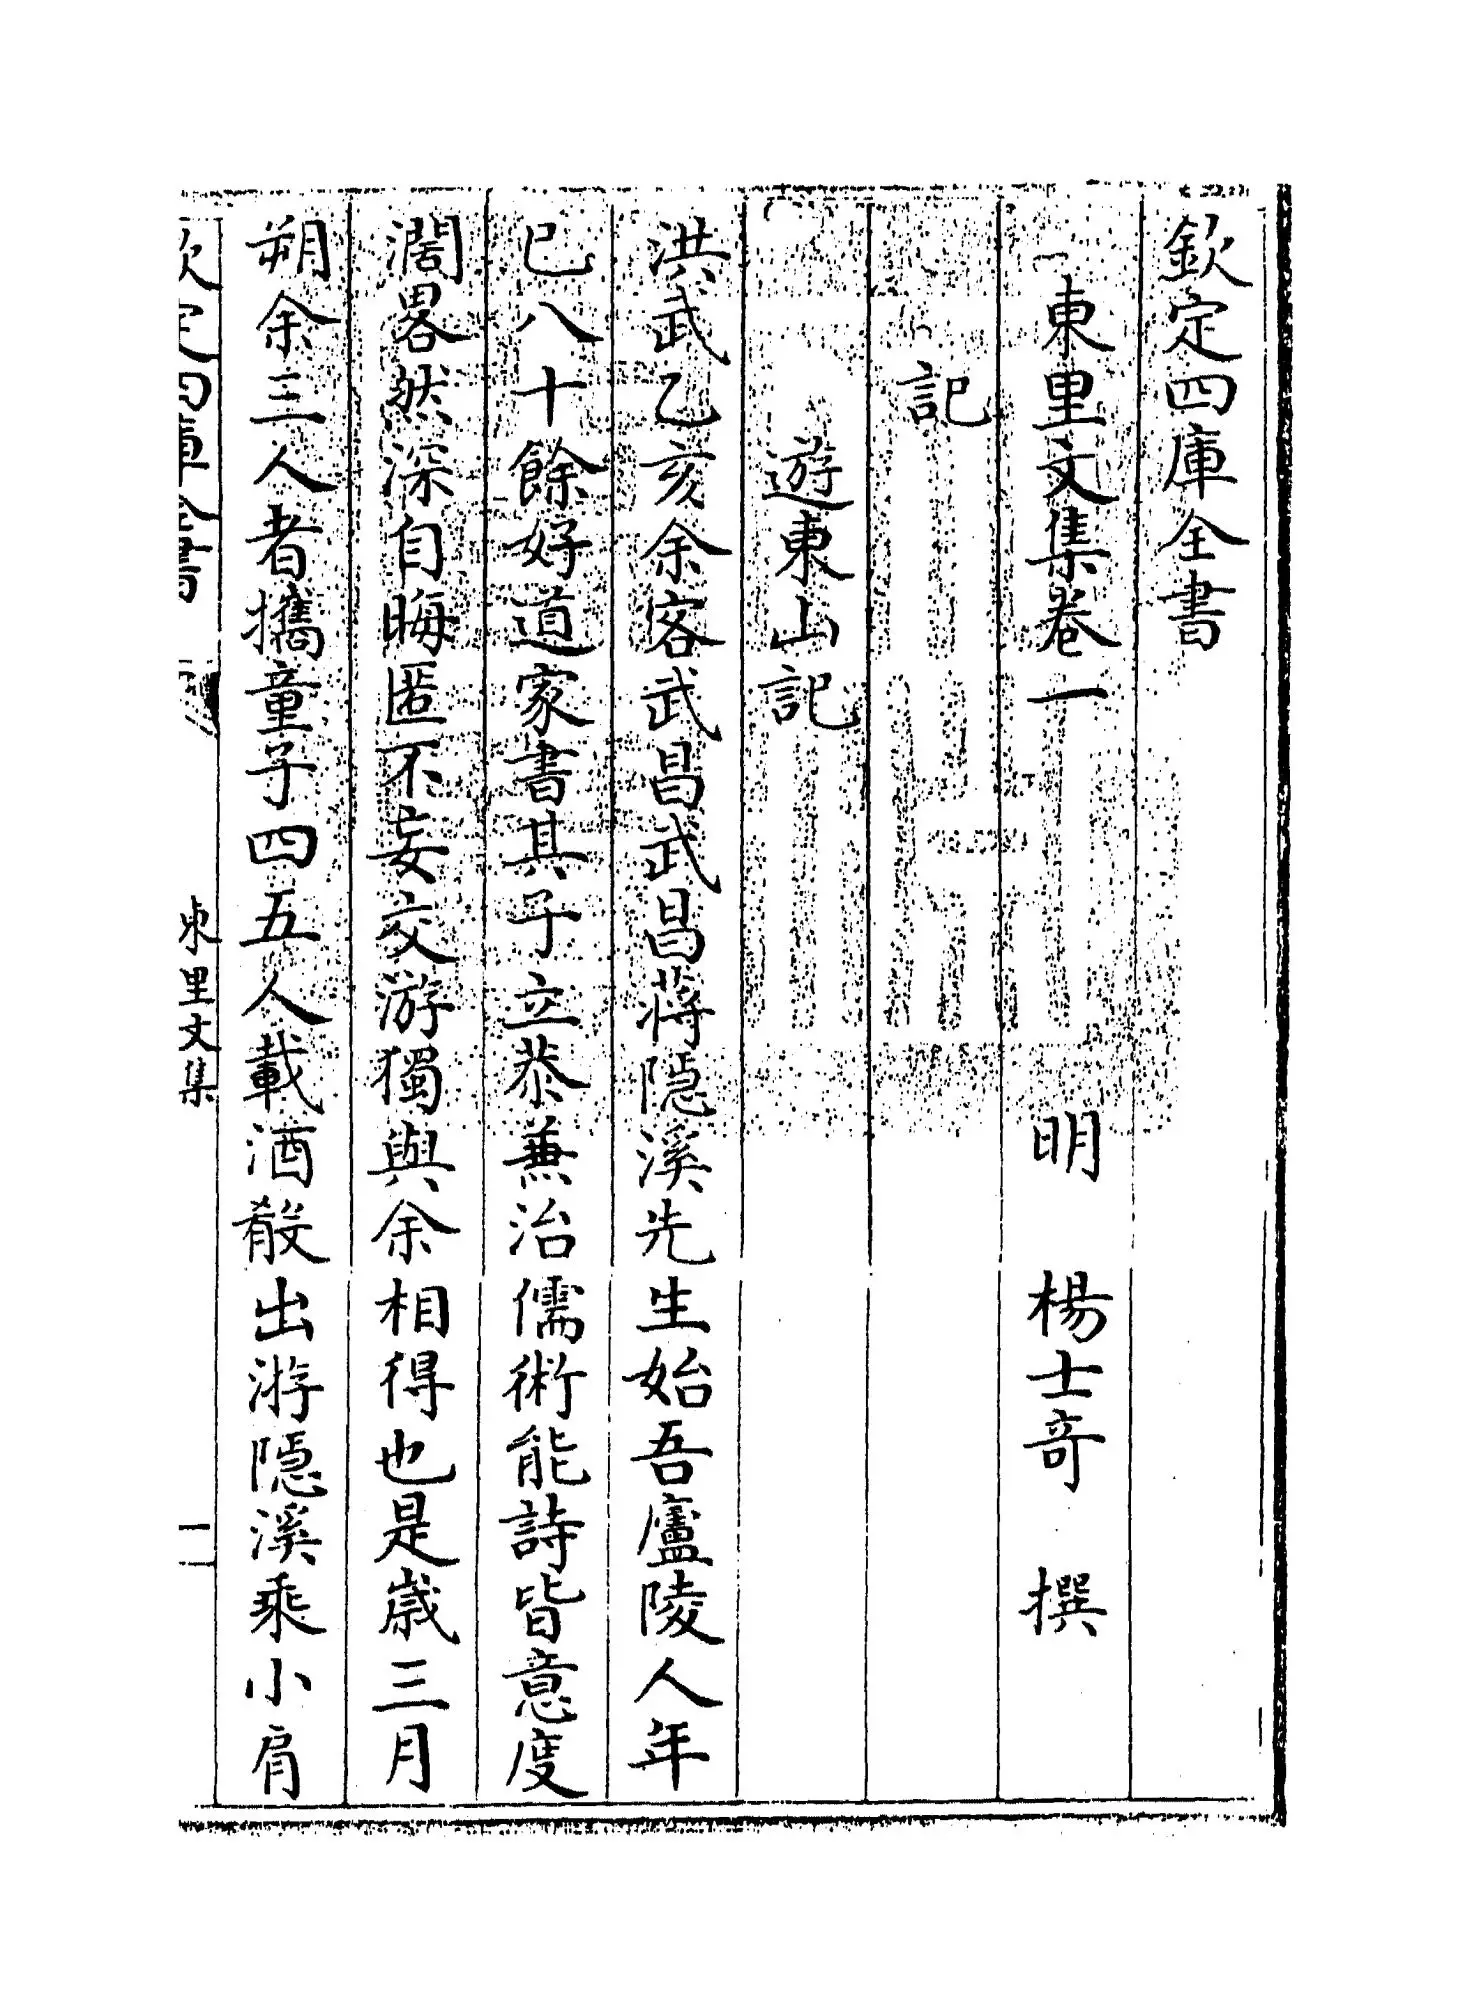 欽定四庫全書
東里文集卷一 明 楊士竒 撰
記
遊東山記
洪武乙亥余客武昌武昌蔣隠溪先生始吾廬陵人年
已八十餘好道家書其子立恭兼治儒術能詩皆意度
濶畧然深自晦匿不妄交游獨與余相得也是歲三月
朔余三人者攜童子四五人載酒殽出游隠溪乘小肩
欽定四庫全書 東里文集 一